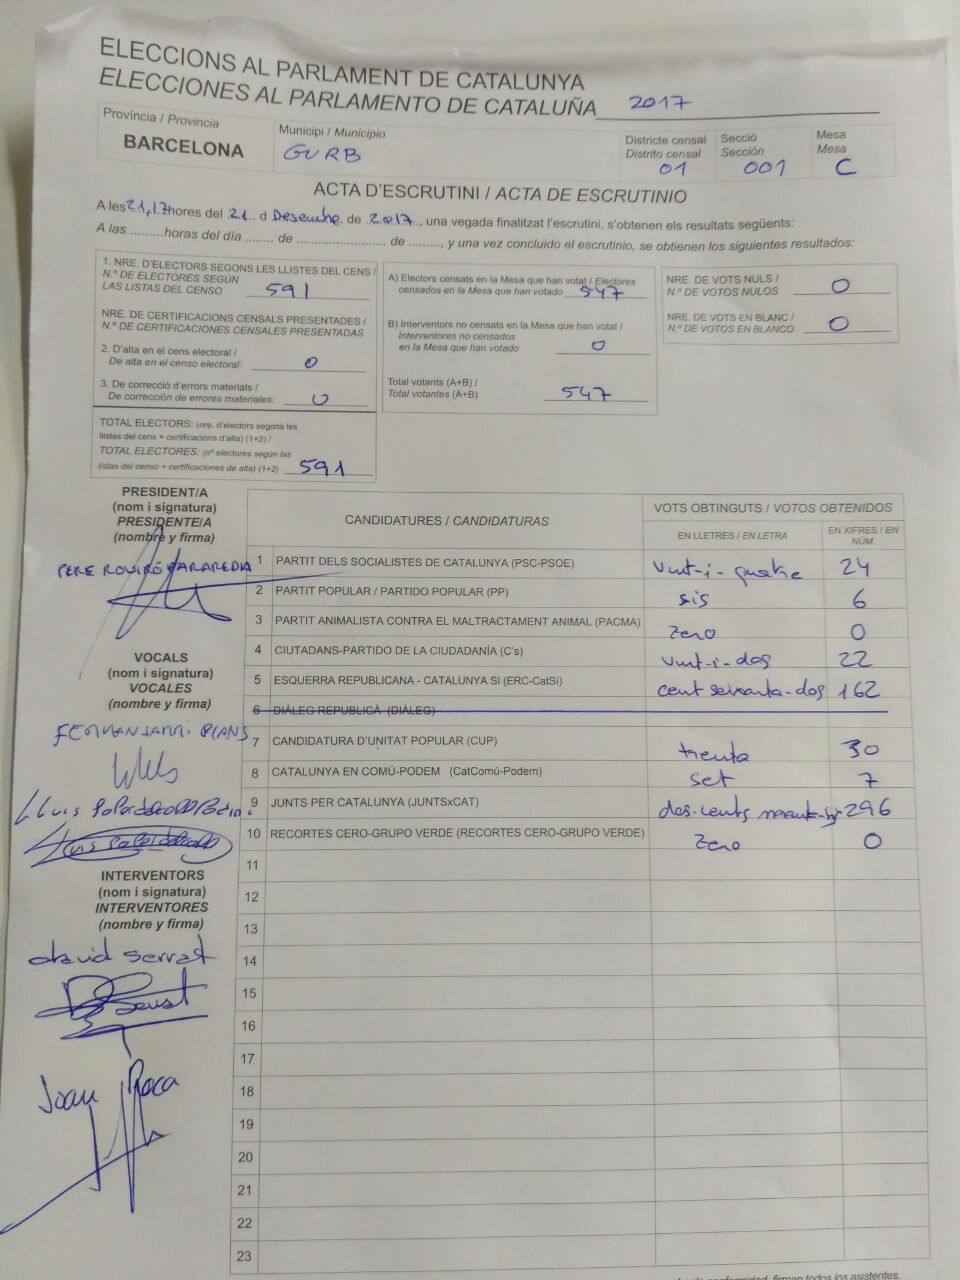 ELECCIONS AL PARLAMENT DE CATALUNYA
ELECCIONES AL PARLAMENTO DE CATALUÑA 2017
Província / Provincia
BARCELONA
Municipi / Municipio
GURB
Districte censal
Distrito censal
01
Secció
Sección
001
Mesa
Mesa
C
ACTA D'ESCRUTINI / ACTA DE ESCRUTINIO
A les 21,17 hores del 21 d Desembre de 2017, una vegada finalitzat l'escrutini, s'obtenen els resultats següents:
A las .........horas del día ........ de ........................ de ........., y una vez concluido el escrutinio, se obtienen los siguientes resultados:
1. NRE. D'ELECTORS SEGONS LES LLISTES DEL CENS /
N.º DE ELECTORES SEGÚN
LAS LISTAS DEL CENSO 591
NRE. DE CERTIFICACIONS CENSALS PRESENTADES /
N.º DE CERTIFICACIONES CENSALES PRESENTADAS
2. D'alta en el cens electoral /
De alta en el censo electoral: 0
3. De correcció d'errors materials /
De corrección de errores materiales: 0
TOTAL ELECTORS: (nre. d'electors segons les
llistes del cens + certificacions d'alta) (1+2) /
TOTAL ELECTORES: (nº electores según las
listas del censo + certificaciones de alta) (1+2) 591
A) Electors censats en la Mesa que han votat / Electores
censados en la Mesa que han votado 547
B) Interventors no censats en la Mesa que han votat /
Interventores no censados
en la Mesa que han votado 0
Total votants (A+B) /
Total votantes (A+B) 547
NRE. DE VOTS NULS /
N.º DE VOTOS NULOS 0
NRE. DE VOTS EN BLANC /
N.º DE VOTOS EN BLANCO 0
PRESIDENT/A
(nom i signatura)
PRESIDENTE/A
(nombre y firma)
PERE
VOCALS
(nom i signatura)
VOCALES
(nombre y firma)
Lluis
INTERVENTORS
(nom i signatura)
INTERVENTORES
(nombre y firma)
david serrat
Joan Roca
CANDIDATURES / CANDIDATURAS
VOTS OBTINGUTS / VOTOS OBTENIDOS
EN LLETRES / EN LETRA
EN XIFRES / EN NÚM.
1 PARTIT DELS SOCIALISTES DE CATALUNYA (PSC-PSOE) vint-i-quatre 24
2 PARTIT POPULAR / PARTIDO POPULAR (PP) sis 6
3 PARTIT ANIMALISTA CONTRA EL MALTRACTAMENT ANIMAL (PACMA) zero 0
4 CIUTADANS-PARTIDO DE LA CIUDADANÍA (C's) vint-i-dos 22
5 ESQUERRA REPUBLICANA - CATALUNYA SI (ERC-CatSí) cent seixanta-dos 162
6 DIÀLEG REPUBLICÀ (DIÀLEG)
7 CANDIDATURA D'UNITAT POPULAR (CUP) trenta 30
8 CATALUNYA EN COMÚ-PODEM (CatComú-Podem) set 7
9 JUNTS PER CATALUNYA (JUNTSxCAT) dos-cents noranta-sis 296
10 RECORTES CERO-GRUPO VERDE (RECORTES CERO-GRUPO VERDE) zero 0
11
12
13
14
15
16
17
18
19
20
21
22
23
de conformidad, firman todos los asistentes.